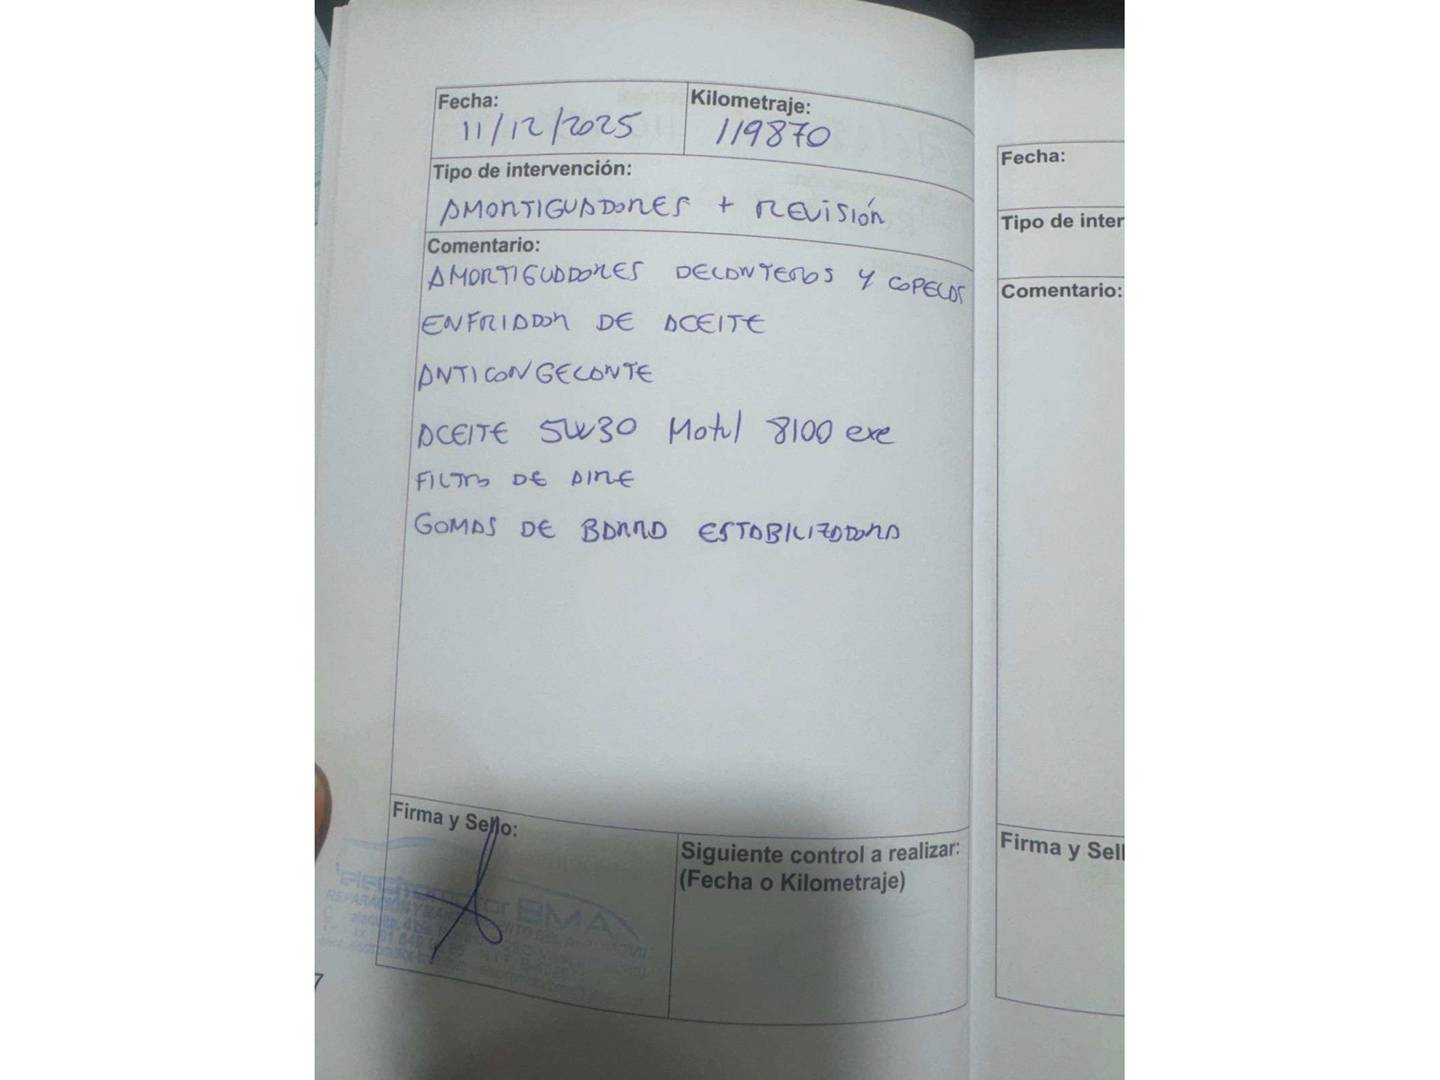 Fecha:
11/12/2025
Kilometraje:
119870
Tipo de intervención:
AMORTIGUADORES + REVISIÓN
Comentario:
AMORTIGUADORES DELANTEROS Y COPELAS
ENFRIADOR DE ACEITE
ANTICONGELANTE
ACEITE 5W30 Motul 8100 exe
FILTRO DE AIRE
GOMAS DE BARRA ESTABILIZADORA
Firma y Sello:
Siguiente control a realizar:
(Fecha o Kilometraje)
7
Fecha:
Tipo de inter
Comentario:
Firma y Sell